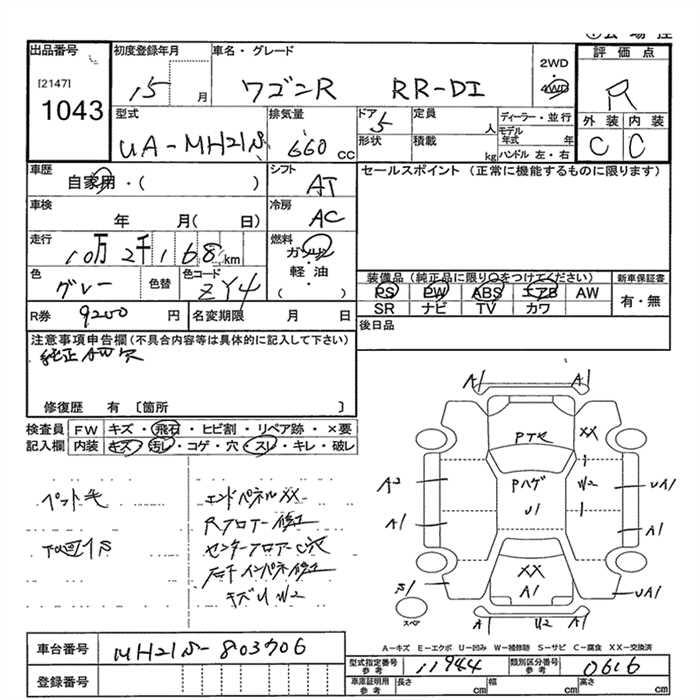 出品番号
[2147]
1043
初度登録年月
15 月
車名・グレード
ワゴンR RR-DI
2WD
4WD
評価点
R
外装 内装
C C
型式
UA-MH21S
排気量
660 CC
ドア
5
形状
定員
人
積載
kg
ディーラー・並行
モデル年式 年
ハンドル 左・右
車歴
自家用・( )
シフト
AT
セールスポイント (正常に機能するものに限ります)
車検
年 月( 日)
冷房
AC
走行
10万 2千168 km
燃料
ガソリン
軽油
( ・ )
色
グレー
色替
色コード
ZY4
装備品(純正品に限り○をつけてください)
新車保証書
PS PW ABS エアB AW
有・無
SR ナビ TV カワ
R券 9200 円
名変期限 月 日
後日品
注意事項申告欄(不具合内容等は具体的に記入して下さい)
純正AW欠
修復歴 有 〔箇所 〕
検査員
記入欄
FW キズ・飛石・ヒビ割・リペア跡・×要
内装 キズ・汚レ・コゲ・穴・スレ・キレ・破レ
ペット毛
エンドパネルXX
Rフロアー修正
センターフロアー凹
キズU W2
A1 A1
PTR XX
A2 Pハゲ W2 UA1
A1 U1 A1
XX
A1 UA1
スペア
A1 A1
A-キズ E-エクボ U-凹み W-補修跡 S-サビ C-腐食 XX-交換済
車台番号
MH21S-803706
登録番号
型式指定番号 参考
11944
類別区分番号 参考
0616
車庫証明用 参考
長さ cm
幅 cm
高さ cm